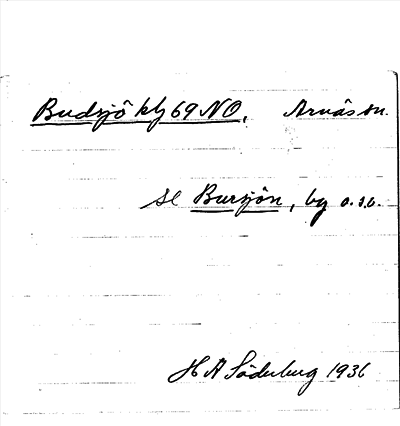 Budsjö klj 69 NO, Arnäs sn.
se Bursjön, by o.s.v.
H A Söderberg 1936